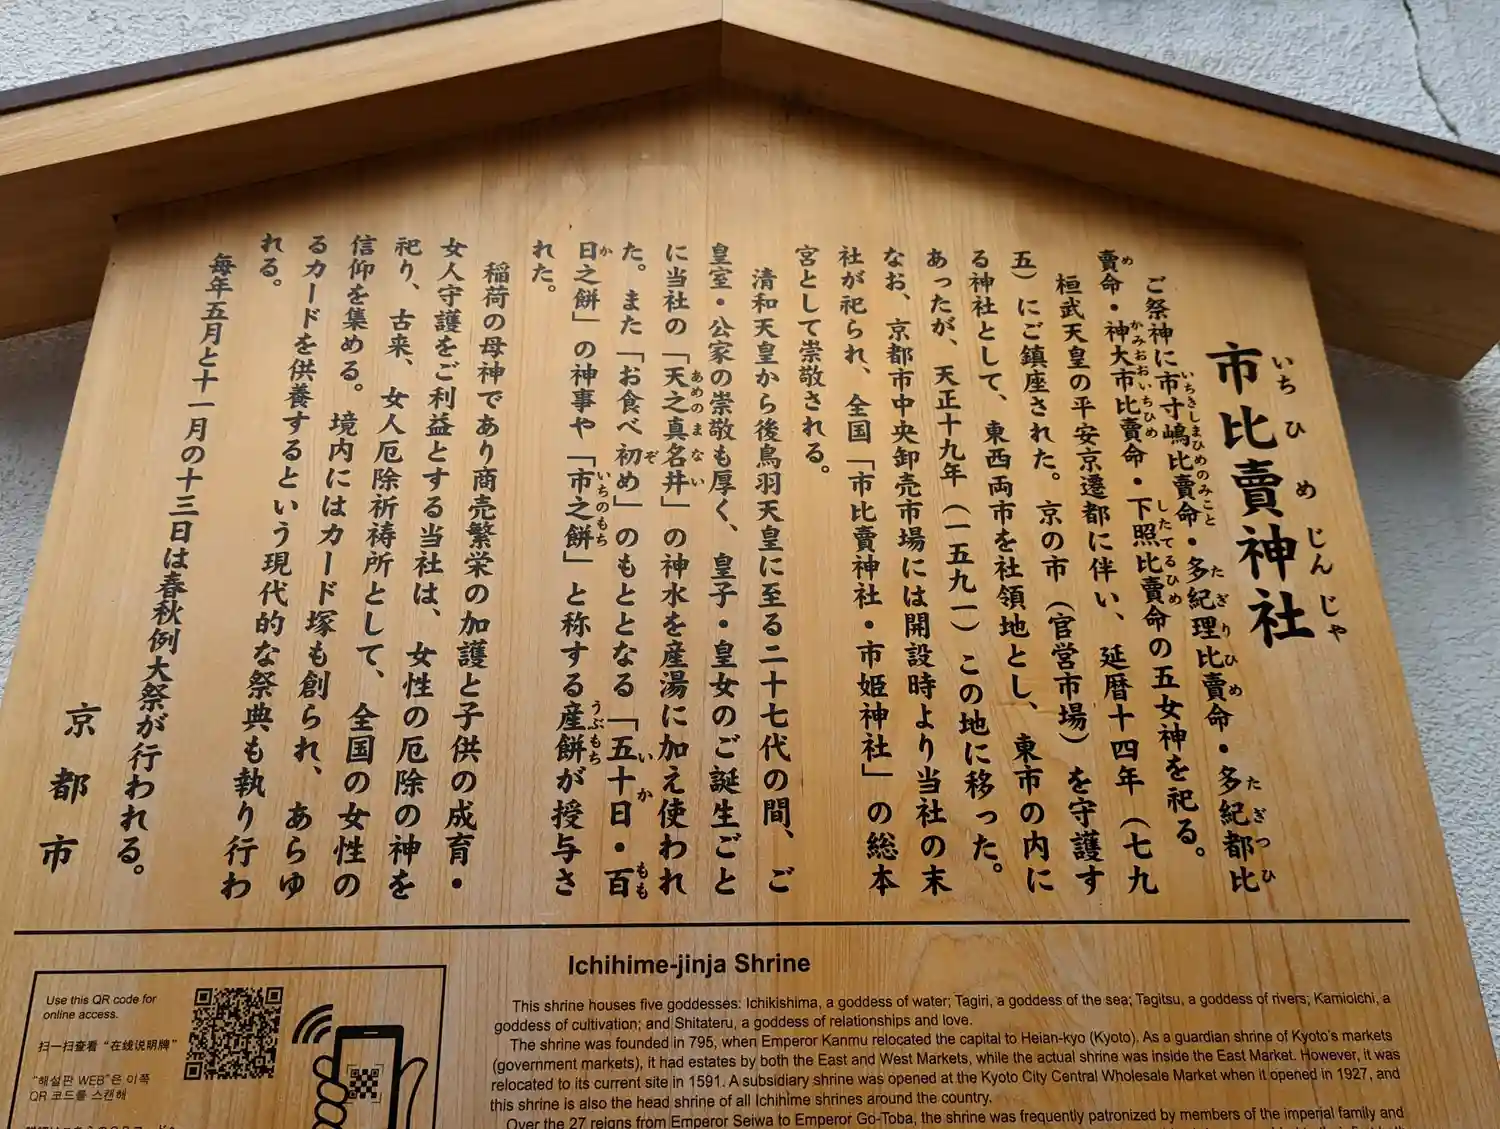 市比賣神社
いちひめじんじゃ
ご祭神に市寸嶋比賣命・多紀理比賣命・多紀都比
いちきしまひめのみこと たぎりひめ たぎつひ
賣命・神大市比賣命・下照比賣命の五女神を祀る。
め かみおおいちひめ したてるひめ
桓武天皇の平安京遷都に伴い、延暦十四年（七九
五）にご鎮座された。京の市（官営市場）を守護す
る神社として、東西両市を社領地とし、東市の内に
あったが、天正十九年（一五九一）この地に移った。
なお、京都市中央卸売市場には開設時より当社の末
社が祀られ、全国「市比賣神社・市姫神社」の総本
宮として崇敬される。
清和天皇から後鳥羽天皇に至る二十七代の間、ご
皇室・公家の崇敬も厚く、皇子・皇女のご誕生ごと
に当社の「天之真名井」の神水を産湯に加え使われ
あめのまない
た。また「お食べ初め」のもととなる「五十日・百
ぞ いか もも
日之餅」の神事や「市之餅」と称する産餅が授与さ
か いちのもち うぶもち
れた。
稲荷の母神であり商売繁栄の加護と子供の成育・
女人守護をご利益とする当社は、女性の厄除の神を
祀り、古来、女人厄除祈祷所として、全国の女性の
信仰を集める。境内にはカード塚も創られ、あらゆ
るカードを供養するという現代的な祭典も執り行わ
れる。
毎年五月と十一月の十三日は春秋例大祭が行われる。
京都市
Use this QR code for
online access.
扫一扫查看“在线说明牌”
"해설판 WEB"은 이쪽
QR 코드를 스캔해
Ichihime-jinja Shrine
This shrine houses five goddesses: Ichikishima, a goddess of water; Tagiri, a goddess of the sea; Tagitsu, a goddess of rivers; Kamioichi, a
goddess of cultivation; and Shitateru, a goddess of relationships and love.
The shrine was founded in 795, when Emperor Kanmu relocated the capital to Heian-kyo (Kyoto). As a guardian shrine of Kyoto's markets
(government markets), it had estates by both the East and West Markets, while the actual shrine was inside the East Market. However, it was
relocated to its current site in 1591. A subsidiary shrine was opened at the Kyoto City Central Wholesale Market when it opened in 1927, and
this shrine is also the head shrine of all Ichihime shrines around the country.
Over the 27 reigns from Emperor Seiwa to Emperor Go-Toba, the shrine was frequently patronized by members of the imperial family and